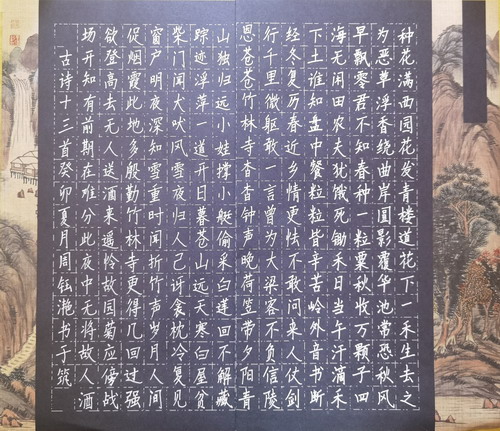 种花满西园花发青楼道花下一禾生去之
为恶草浮香绕曲岸圆影覆华池常恐秋风
早飘零君不知春种一粒粟秋收万颗子四
海无闲田农夫犹饿死锄禾日当午汗滴禾
下土谁知盘中餐粒粒皆辛苦岭外音书断
经冬复历春近乡情更怯不敢问来人仗剑
行千里微躯敢一言曾为大梁客不负信陵
恩苍苍竹林寺杳杳钟声晚荷笠带夕阳青
山独归远小娃撑小艇偷采白莲回不解藏
踪迹浮萍一道开日暮苍山远天寒白屋贫
柴门闻犬吠风雪夜归人已讶衾枕冷复见
窗户明夜深知雪重时闻折竹声岁月人间
促烟霞此地多殷勤竹林寺更得几回过强
欲登高去无人送酒来遥怜故园菊应傍战
场开知有前期在难分此夜中无将故人酒
古诗十三首癸卯夏月周钰滟书于筑